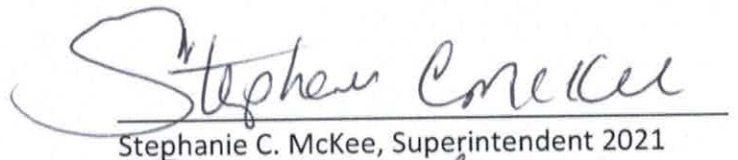 Stephanie C. McKee
Stephanie C. McKee, Superintendent 2021